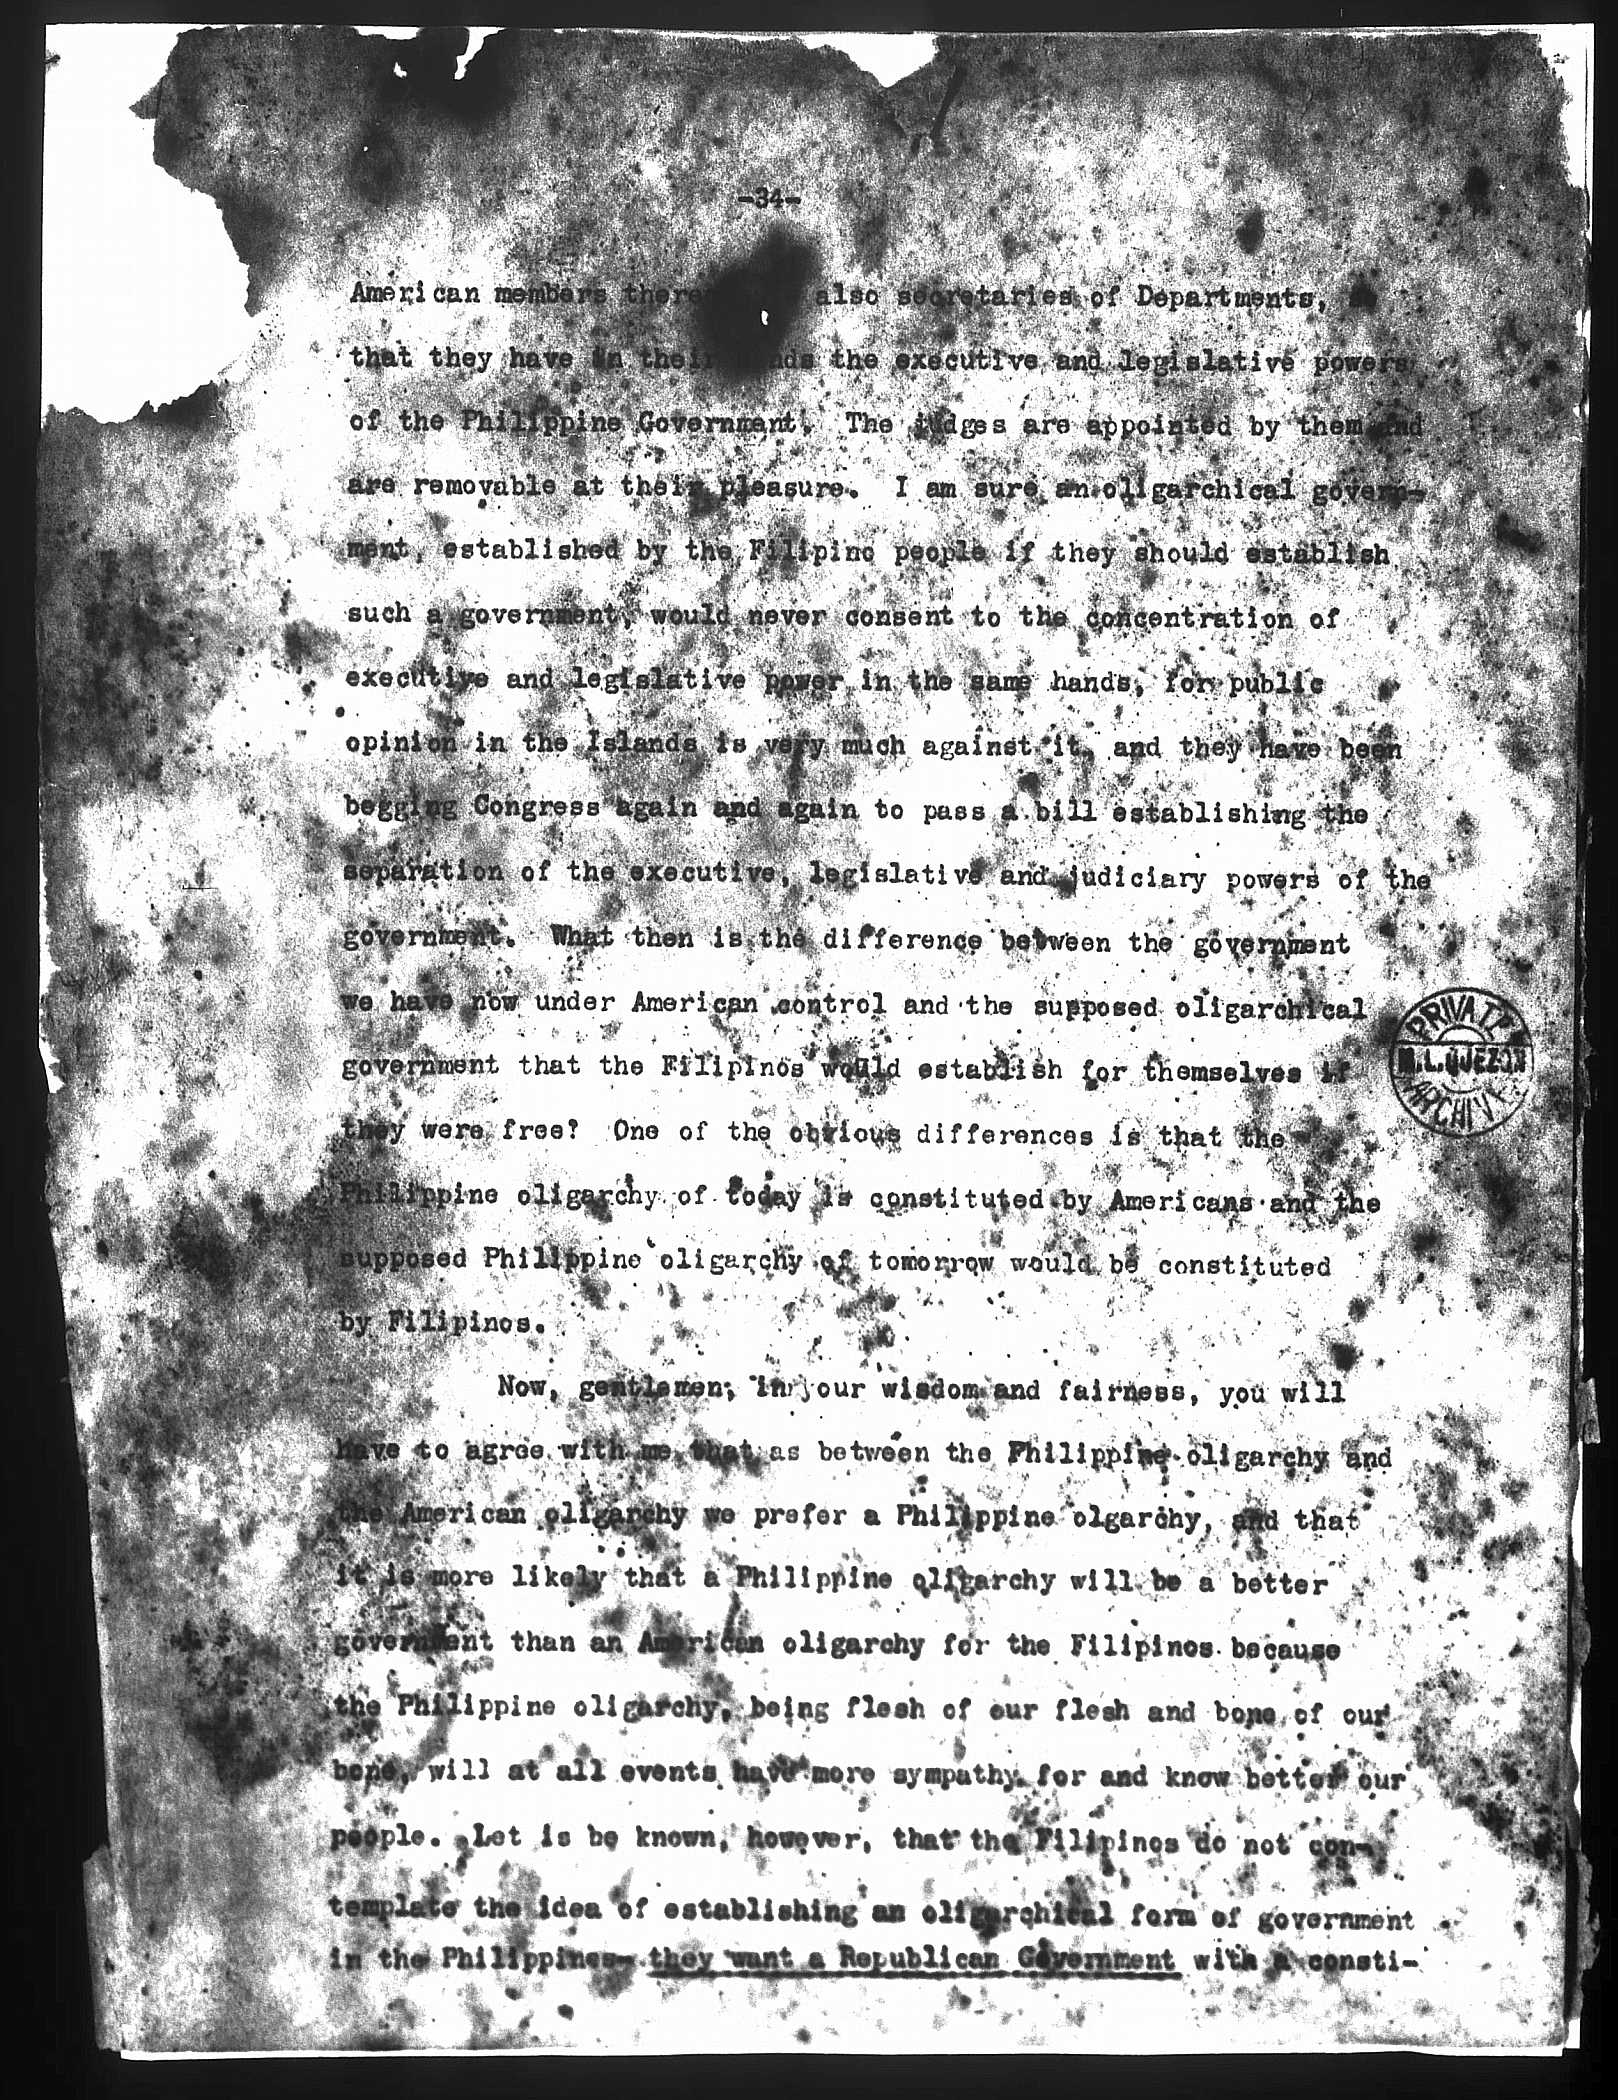 -34-
American members also secretaries of Departments,
that they have in their the executive and legislative powers
of the Philippine Government. The judges are appointed by them and
are removable at their pleasure. I am sure an oligarchical govern-
ment, established by the Filipino people if they should establish
such a government, would never consent to the concentration of
executive and legislative power in the same hands, for public
opinion in the Islands is very much against it, and they have been
begging Congress again and again to pass a bill establishing the
separation of the executive, legislative and judiciary powers of the
government. What then is the difference between the government
we have now under American control and the supposed oligarchical
government that the Filipinos would establish for themselves if
they were free? One of the obvious differences is that the
Philippine oligarchy of today is constituted by Americans and the
supposed Philippine oligarchy of tomorrow would be constituted
by Filipinos.
Now, gentlemen, in your wisdom and fairness, you will
have to agree with me that as between the Philippine oligarchy and
the American oligarchy we prefer a Philippine olgarchy, and that
it is more likely that a Philippine oligarchy will be a better
government than an American oligarchy for the Filipinos because
the Philippine oligarchy, being flesh of our flesh and bone of our
bone, will at all events have more sympathy for and know better our
people. Let is be known, however, that the Filipinos do not con-
template the idea of establishing an oligarchical form of government
in the Philippines- they want a Republican Government with a consti-
PRIVATE
M.L.QUEZON
ARCHIVE